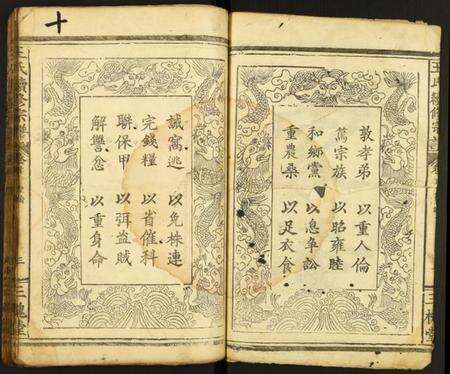 敦孝弟 以重人倫
篤宗族 以昭雍睦
和鄉黨 以息爭訟
重農桑 以足衣食
誡窩逃 以免株連
完錢糧 以省催科
聯保甲 以弭盜賊
解讐忿 以重身命
王氏續修宗譜
三槐堂
十